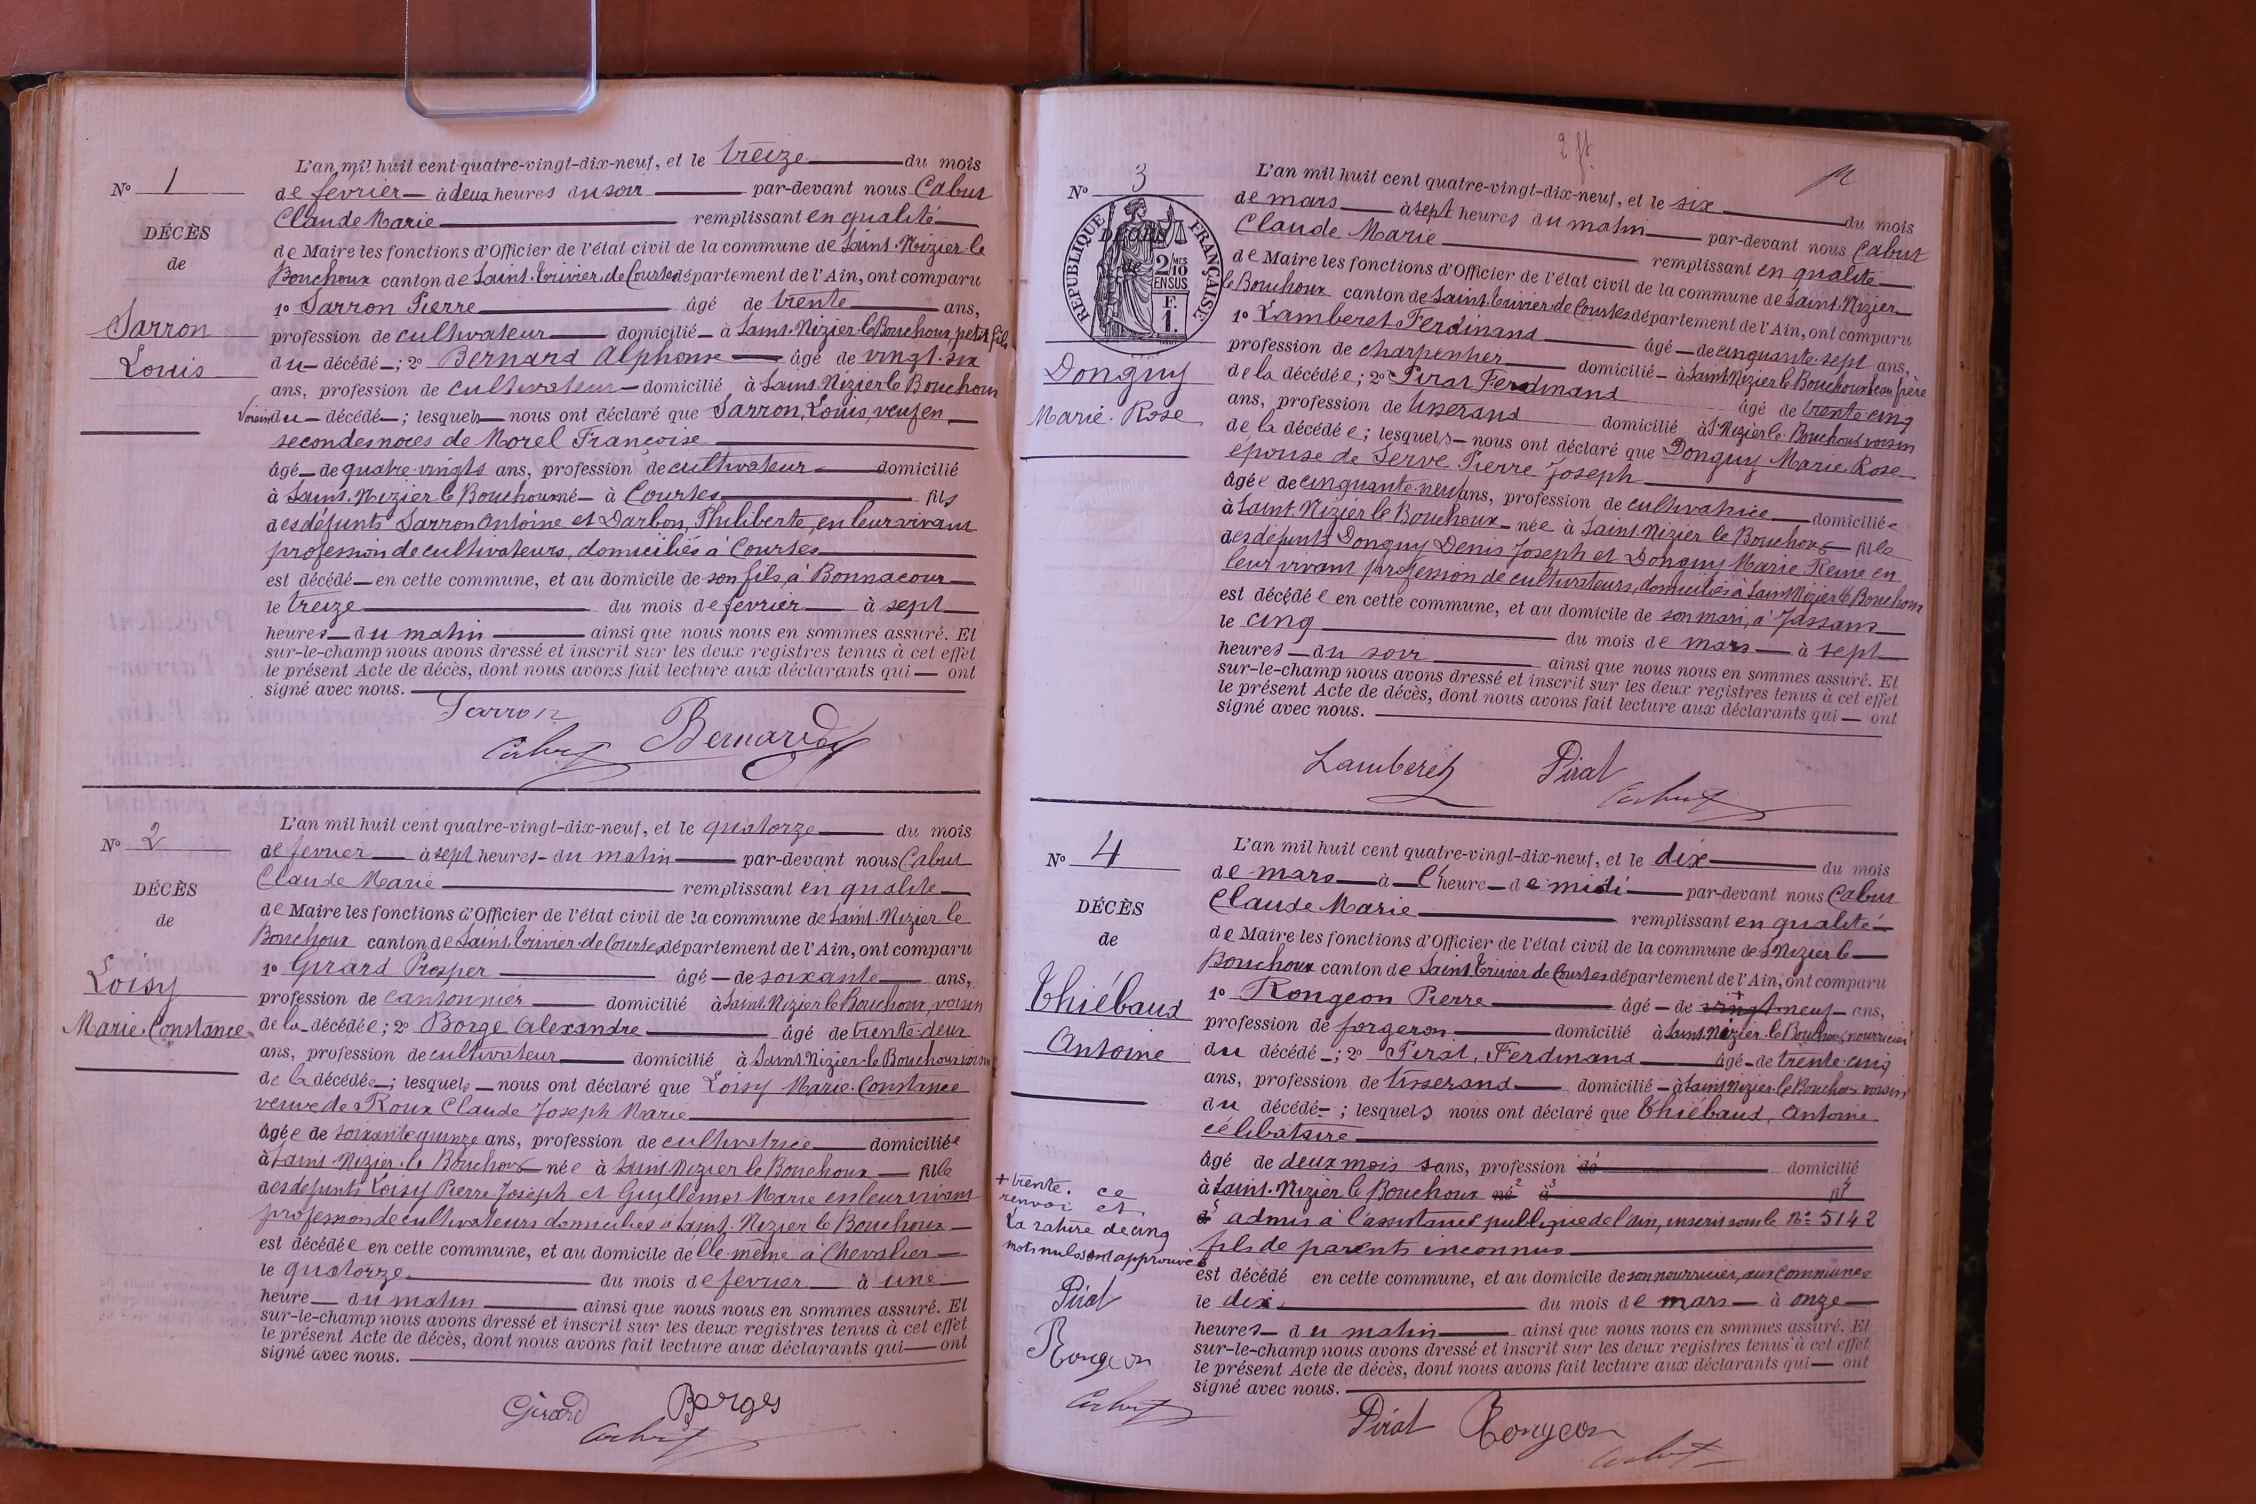 N° 1
DÉCÈS
de
Sarron
Louis
L'an mil huit cent quatre-vingt-dix-neuf, et le treize du mois
de fevrier à deux heures du soir par-devant nous Cabut
Claude Marie remplissant en qualité
de Maire les fonctions d'Officier de l'état civil de la commune de Saint-Nizier le
Bouchoux canton de Saint-Trivier-de-Courtes département de l'Ain, ont comparu
1° Sarron Pierre âgé de trente ans,
profession de cultivateur domicilié à Saint-Nizier le Bouchoux petit fils
du décédé ; 2° Bernard Alphonse âgé de vingt-six
ans, profession de cultivateur domicilié à Saint Nizier le Bouchoux
voisin du décédé ; lesquels nous ont déclaré que Sarron, Louis, veuf en
secondes noces de Morel Françoise
âgé de quatre-vingts ans, profession de cultivateur domicilié
à Saint-Nizier le Bouchoux né à Courtes fils
des défunts Sarron Antoine et Darbon, Philiberte, en leur vivant
profession de cultivateurs, domiciliés à Courtes
est décédé en cette commune, et au domicile de son fils, à Bonnacour
le treize du mois de fevrier à sept
heures du matin ainsi que nous nous en sommes assuré. Et
sur-le-champ nous avons dressé et inscrit sur les deux registres tenus à cet effet
le présent Acte de décès, dont nous avons fait lecture aux déclarants qui ont
signé avec nous.
Sarron
Cabut Bernard
N° 2
DÉCÈS
de
Loisy
Marie-Constance
L'an mil huit cent quatre-vingt-dix-neuf, et le quatorze du mois
de fevrier à sept heures du matin par-devant nous Cabut
Claude Marie remplissant en qualité
de Maire les fonctions d'Officier de l'état civil de la commune de Saint-Nizier le
Bouchoux canton de Saint-Trivier-de-Courtes département de l'Ain, ont comparu
1° Girard Prosper âgé de soixante ans,
profession de cantonnier domicilié à Saint-Nizier le Bouchoux, voisin
de la décédée ; 2° Borge Alexandre âgé de trente-deux
ans, profession de cultivateur domicilié à Saint-Nizier-le Bouchoux voisin
de la décédée ; lesquels nous ont déclaré que Loisy Marie-Constance
veuve de Roux Claude Joseph Marie
âgée de soixante quinze ans, profession de cultivatrice domiciliée
à Saint-Nizier-le Bouchoux née à Saint Nizier le Bouchoux fille
des défunts Loisy Pierre Joseph et Guillemot Marie en leur vivant
profession de cultivateurs domiciliés à Saint-Nizier le Bouchoux
est décédée en cette commune, et au domicile d'elle-même à Chevalier
le quatorze du mois de fevrier à une
heure du matin ainsi que nous nous en sommes assuré. Et
sur-le-champ nous avons dressé et inscrit sur les deux registres tenus à cet effet
le présent Acte de décès, dont nous avons fait lecture aux déclarants qui ont
signé avec nous.
Girard Borges
Cabut
2 ft
N° 3
RÉPUBLIQUE FRANÇAISE
2/10 MES
EN SUS
F.
1.
Donguy
Marie-Rose
L'an mil huit cent quatre-vingt-dix-neuf, et le six du mois
de mars à sept heures du matin par-devant nous Cabut
Claude Marie remplissant en qualité
de Maire les fonctions d'Officier de l'état civil de la commune de Saint-Nizier
le Bouchoux canton de Saint-Trivier-de-Courtes département de l'Ain, ont comparu
1° Lamberet Ferdinand âgé de cinquante-sept ans,
profession de charpentier domicilié à Saint Nizier le Bouchoux beau frère
de la décédée ; 2° Pirat Ferdinand âgé de trente-cinq
ans, profession de tisserand domicilié à St Nizier le Bouchoux voisin
de la décédée ; lesquels nous ont déclaré que Donguy Marie Rose
épouse de Serve Pierre Joseph
âgée de cinquante-neuf ans, profession de cultivatrice domiciliée
à Saint Nizier le Bouchoux née à Saint Nizier le Bouchoux fille
des défunts Donguy Denis Joseph et Donguy Marie Reine en
leur vivant profession de cultivateurs, domiciliés à Saint Nizier le Bouchoux
est décédée en cette commune, et au domicile de son mari, à Jassans
le cinq du mois de mars à sept
heures du soir ainsi que nous nous en sommes assuré. Et
sur-le-champ nous avons dressé et inscrit sur les deux registres tenus à cet effet
le présent Acte de décès, dont nous avons fait lecture aux déclarants qui ont
signé avec nous.
Lamberet Pirat
Cabut
N° 4
DÉCÈS
de
Thiébaud
Antoine
L'an mil huit cent quatre-vingt-dix-neuf, et le dix du mois
de mars à l'heure de midi par-devant nous Cabut
Claude Marie remplissant en qualité
de Maire les fonctions d'Officier de l'état civil de la commune de St Nizier le
Bouchoux canton de Saint Trivier de Courtes département de l'Ain, ont comparu
1° Rongeon Pierre âgé de vingt + neuf ans,
profession de forgeron domicilié à Saint-Nizier-le Bouchoux, nourricier
du décédé ; 2° Pirat, Ferdinand âgé de trente-cinq
ans, profession de tisserand domicilié à Saint Nizier-le Bouchoux voisin
du décédé ; lesquels nous ont déclaré que Thiébaud, Antoine
célibataire
âgé de deux mois sans, profession de domicilié
à Saint-Nizier le Bouchoux né à fil
d admis à l'assistance publique de l'ain, inscrit sous le N° 5142
fils de parents inconnus
est décédé en cette commune, et au domicile de son nourricier, aux Communes
le dix du mois de mars à onze
heures du matin ainsi que nous nous en sommes assuré. Et
sur-le-champ nous avons dressé et inscrit sur les deux registres tenus à cet effet
le présent Acte de décès, dont nous avons fait lecture aux déclarants qui ont
signé avec nous.
Pirat Rongeon
Cabut
+ trente. ce
renvoi et
la rature de cinq
mots nuls sont approuvés
Pirat
Rongeon
Cabut